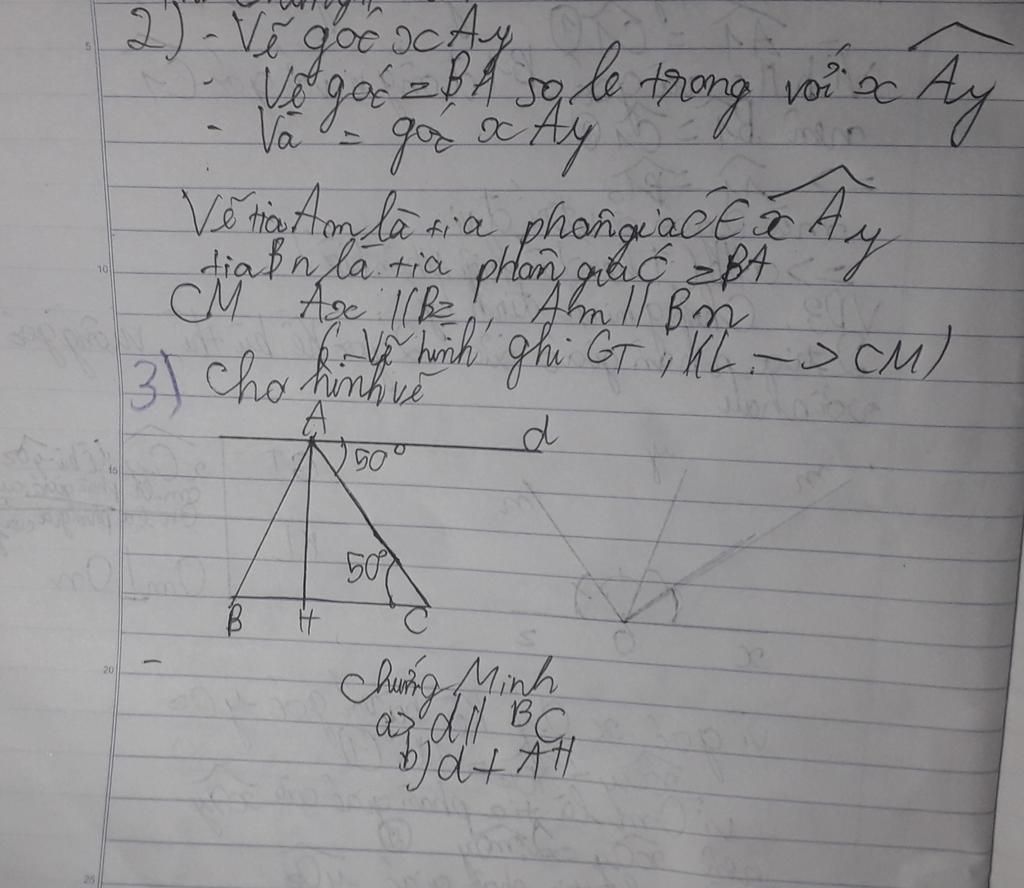 2) - Vẽ góc xAy
- Vẽ góc zBA so le trong với xAy
- Và = góc xAy
Vẽ tia Am là tia phân giác xAy
tia Bn là tia phân giác zBA
CM Ax // Bz, Am // Bn
(-Vẽ hình ghi GT, KL -> CM)
3) Cho hình vẽ
A
d
50°
50°
B H C
Chứng Minh
a> d // BC
b) d ⊥ AH